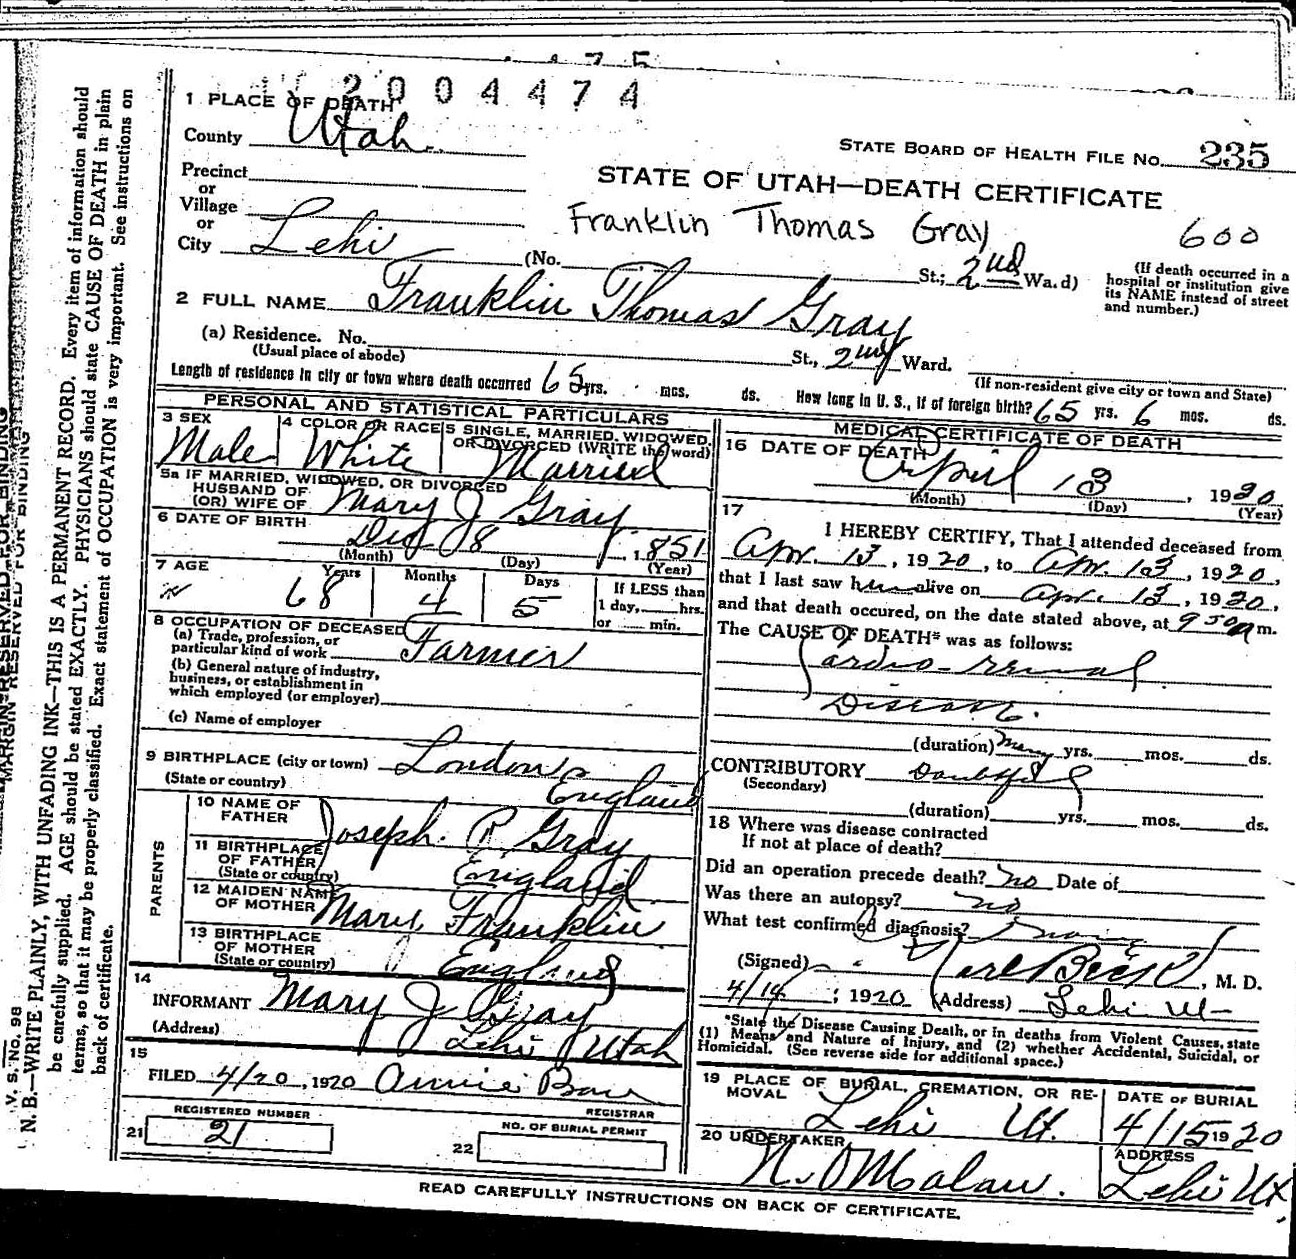 2004474
1 PLACE OF DEATH
County Utah
STATE BOARD OF HEALTH FILE No. 235
Precinct
or
STATE OF UTAH—DEATH CERTIFICATE
Village
or
Franklin Thomas Gray 600
City Lehi (No. St.; 2nd Ward)
(If death occurred in a
hospital or institution give
its NAME instead of street
and number.)
2 FULL NAME Franklin Thomas Gray
(a) Residence. No. St., 2nd Ward.
(Usual place of abode)
(If non-resident give city or town and State)
Length of residence in city or town where death occurred 65 yrs. mos. ds. How long in U. S., if of foreign birth? 65 yrs. 6 mos. ds.
PERSONAL AND STATISTICAL PARTICULARS
3 SEX
Male
4 COLOR OR RACE
White
5 SINGLE, MARRIED, WIDOWED,
OR DIVORCED (WRITE the word)
Married
5a IF MARRIED, WIDOWED, OR DIVORCED
HUSBAND OF
(OR) WIFE OF Mary J Gray
6 DATE OF BIRTH
Dec 8 1851
(Month) (Day) (Year)
7 AGE
Years Months Days
68 4 5
If LESS than
1 day, hrs.
or min.
8 OCCUPATION OF DECEASED
(a) Trade, profession, or
particular kind of work Farmer
(b) General nature of industry,
business, or establishment in
which employed (or employer)
(c) Name of employer
9 BIRTHPLACE (city or town) London
(State or country) England
PARENTS
10 NAME OF
FATHER Joseph R Gray
11 BIRTHPLACE
OF FATHER
(State or country) England
12 MAIDEN NAME
OF MOTHER Mary Franklin
13 BIRTHPLACE
OF MOTHER
(State or country) England
14
INFORMANT Mary J Gray
(Address) Lehi Utah
15
FILED 4/20, 1920 Annie
REGISTRAR
REGISTERED NUMBER
21 21
NO. OF BURIAL PERMIT
22
MEDICAL CERTIFICATE OF DEATH
16 DATE OF DEATH
April 13, 1920
(Month) (Day) (Year)
17
I HEREBY CERTIFY, That I attended deceased from
Apr. 13, 1920, to Apr. 13, 1920,
that I last saw him alive on Apr. 13, 1920,
and that death occured, on the date stated above, at 9 50 a m.
The CAUSE OF DEATH* was as follows:
Cardio-renal
Disease.
(duration) many yrs. mos. ds.
CONTRIBUTORY Doubtful
(Secondary)
(duration) yrs. mos. ds.
18 Where was disease contracted
If not at place of death?
Did an operation precede death? no Date of
Was there an autopsy? no
What test confirmed diagnosis?
(Signed) M. D.
4/14; 1920 (Address) Lehi Ut
*State the Disease Causing Death, or in deaths from Violent Causes, state
(1) Means and Nature of Injury, and (2) whether Accidental, Suicidal, or
Homicidal. (See reverse side for additional space.)
19 PLACE OF BURIAL, CREMATION, OR RE-
MOVAL
Lehi Ut.
DATE OF BURIAL
4/15 1920
20 UNDERTAKER
ADDRESS
Lehi Ut.
READ CAREFULLY INSTRUCTIONS ON BACK OF CERTIFICATE.
MARGIN RESERVED FOR BINDING
V. S. No. 98
N. B.—WRITE PLAINLY, WITH UNFADING INK—THIS IS A PERMANENT RECORD. Every item of information should
be carefully supplied. AGE should be stated EXACTLY. PHYSICIANS should state CAUSE OF DEATH in plain
terms, so that it may be properly classified. Exact statement of OCCUPATION is very important. See instructions on
back of certificate.